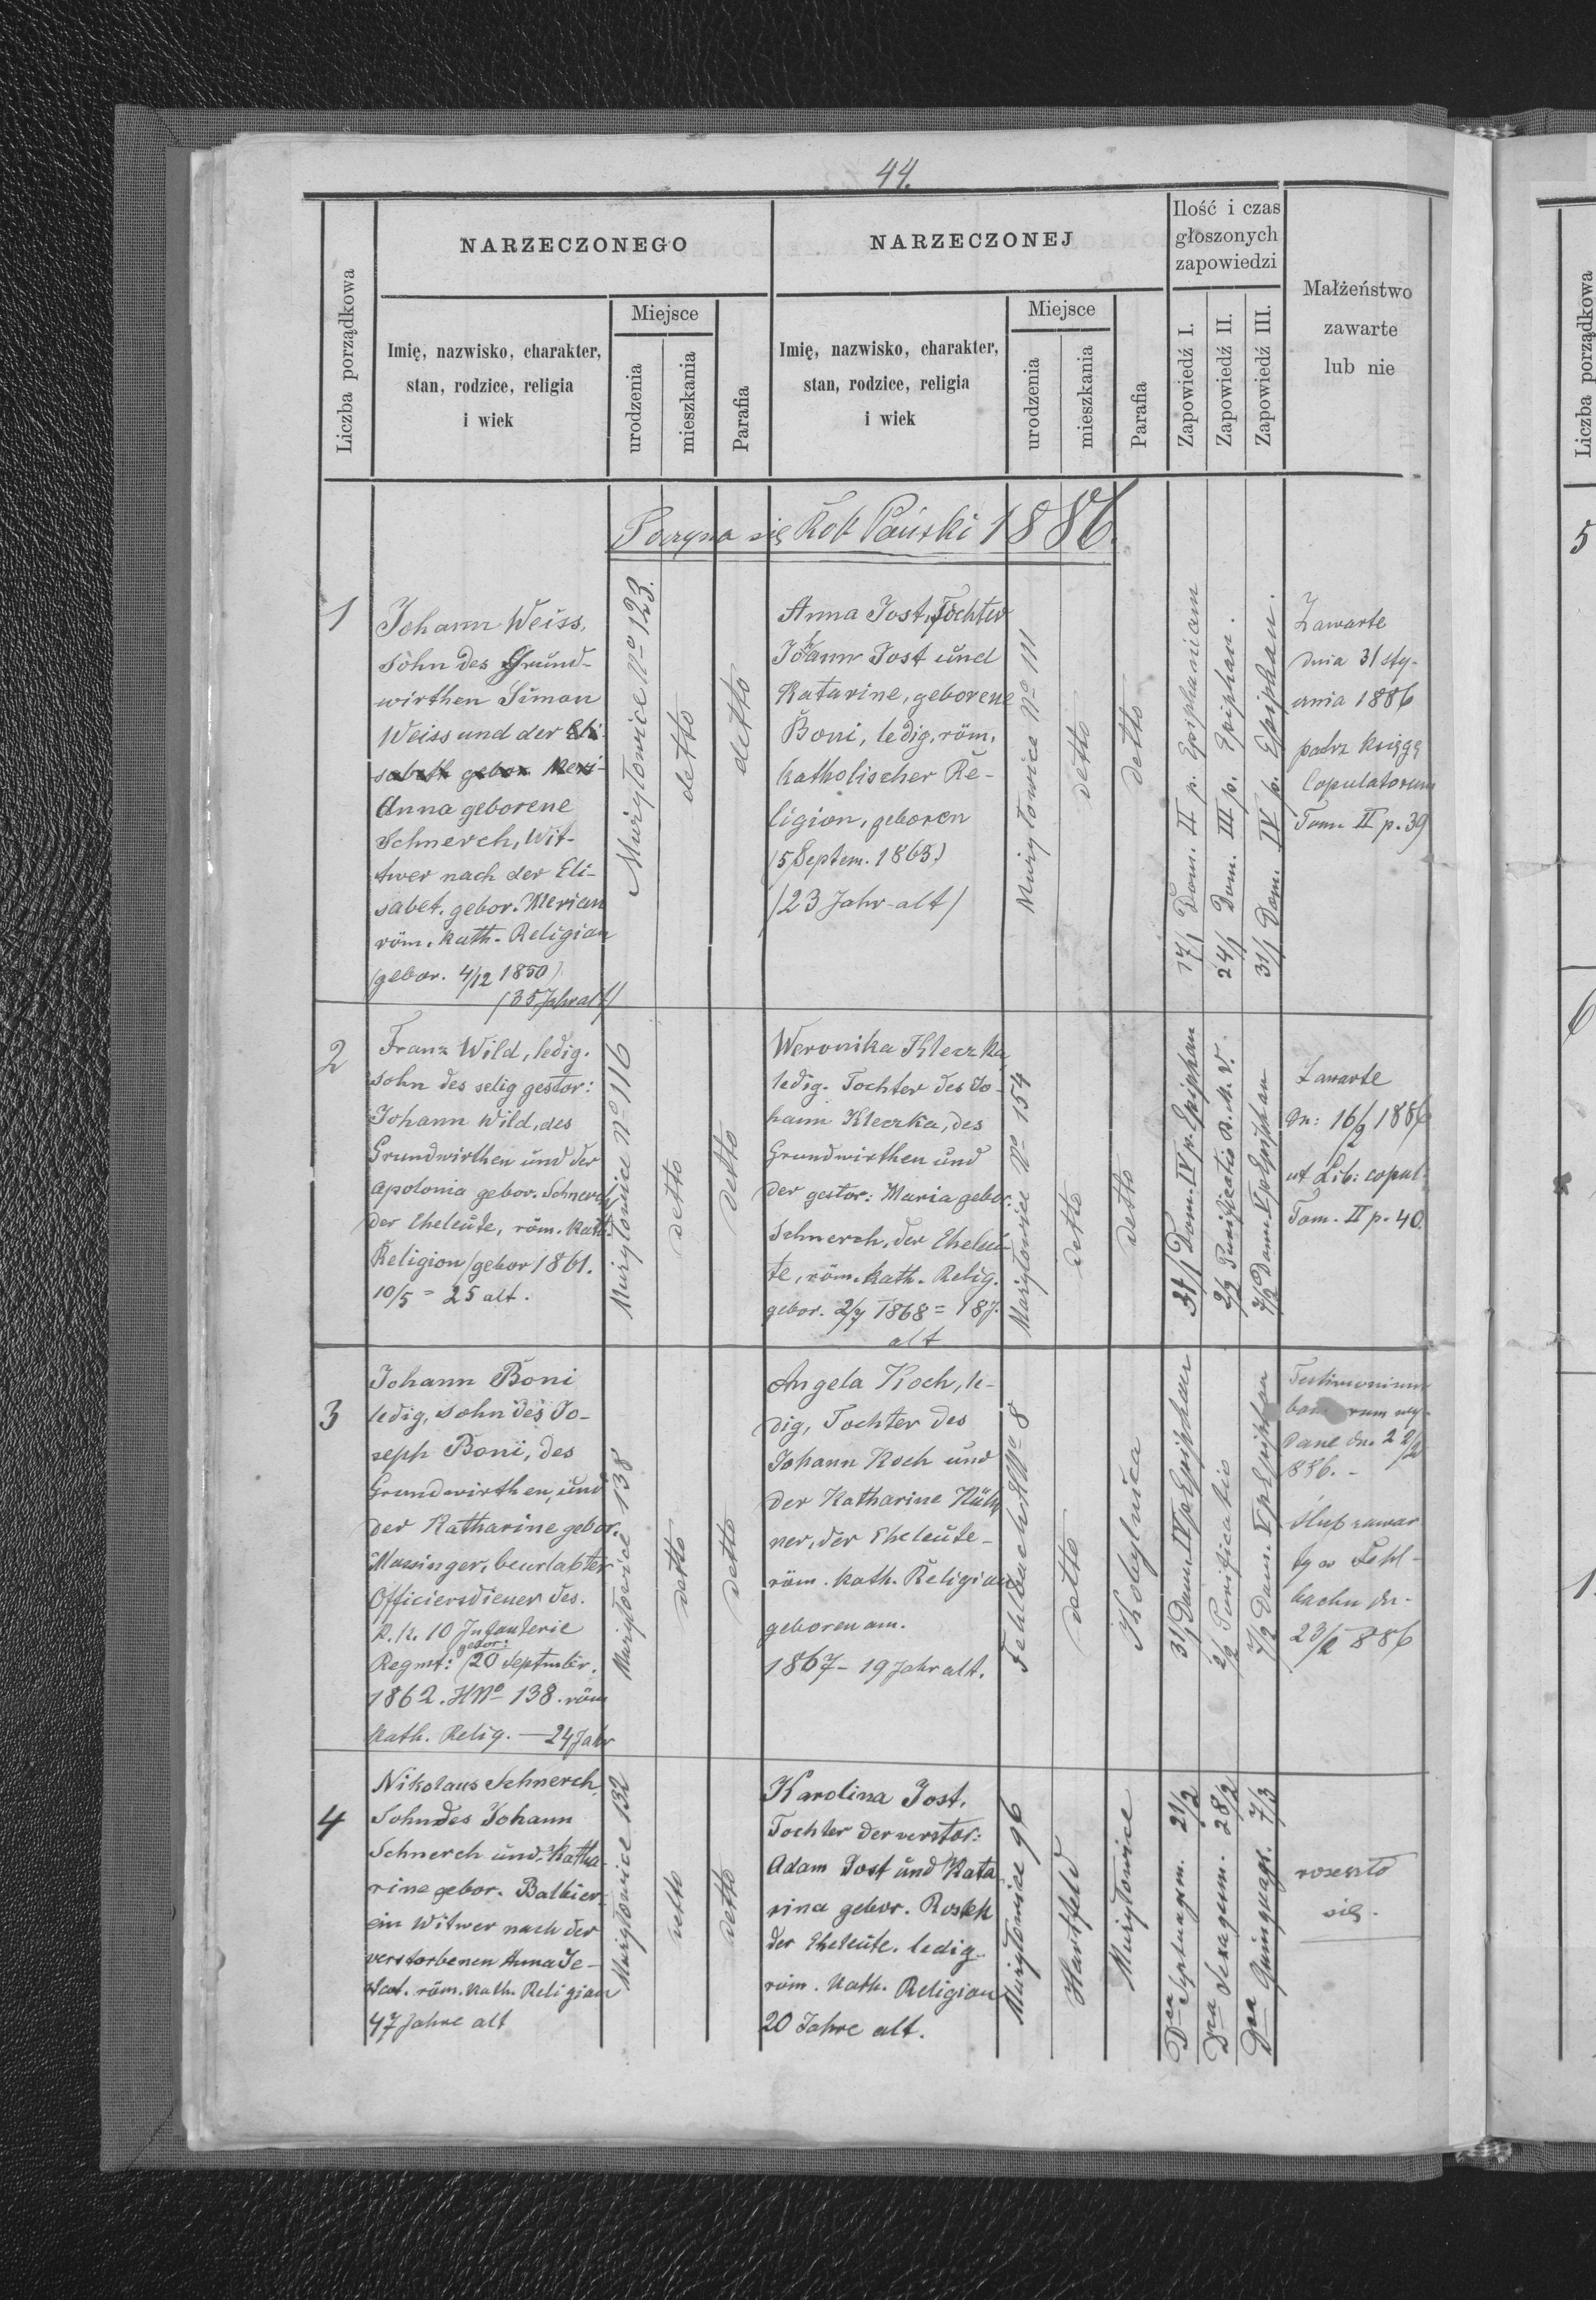 44.
Liczba porządkowa
NARZECZONEGO
Imię, nazwisko, charakter,
stan, rodzice, religia
i wiek
Miejsce
urodzenia
mieszkania
Parafia
NARZECZONEJ
Imię, nazwisko, charakter,
stan, rodzice, religia
i wiek
Miejsce
urodzenia
mieszkania
Parafia
Ilość i czas
głoszonych
zapowiedzi
Zapowiedź I.
Zapowiedź II.
Zapowiedź III.
Małżeństwo
zawarte
lub nie
Poczyna się Rok Pański 1886.
1
Johann Weiss,
sohn des Grund-
wirthen Simon
Weiss und der Eli-
sabeth gebor Meri-
Anna geborene
Schnerch, Wit-
twer nach der Eli-
sabet. gebor. Merian
röm. kath. Religian
(gebor. 4/12 1850)
/35 Jahr alt/
Muzyłowice No 123.
detto
detto
Anna Jost, Tochter
Johann Jost und
Katarine, geborene
Boni, ledig, röm.
katholischer Re-
ligion, geboren
(5 Septem. 1863)
/23 Jahr alt/
Muzyłowice No 111
detto
detto
17/1 Dom. II p. Epiphaniam
24/1 Dom. III p. Epiphan.
31/1 Dom. IV p. Epiphan.
Zawarte
dnia 31 sty-
cznia 1886
patrz księgę
Copulatorum
Tom II p. 39
2
Franz Wild, ledig.
sohn des selig gestor:
Johann Wild, des
Grundwirthen und der
Apolonia gebor. Schnerch,
der Eheleute, röm. kath.
Religion/gebor 1861.
10/5 = 25 alt.
Muzyłowice No 116
detto
detto
Weronika Kleczka
ledig. Tochter des Jo-
hann Kleczka, des
Grundwirthen und
der gestor: Maria gebor:
Schnerch, der Eheleu-
te, röm. kath. Relig.
gebor. 2/7 1868 = 18 J.
alt
Muzyłowice No 154
detto
detto
31/1 Dom. IV p. Epiphan
2/2 Purificatio B. M. V.
7/2 Dom V p Epiphan
Zawarte
dn: 16/2 1886
ut Lib: copul:
Tom. II p. 40.
3
Johann Boni
ledig, sohn des Jo-
seph Boni, des
Grundwirthen, und
der Katharine gebor.
Massinger, beurlabter
Officiersdiener des.
K. k. 10 Infanterie
Regmt: (gebor: 20 Septmber.
1862. HNo 138. röm
kath. Relig. — 24 Jahr
Muzyłowice 138
detto
detto
Angela Koch, le-
dig, Tochter des
Johann Koch und
der Katharine Küh-
ner, der Eheleute-
röm. kath. Religian
geboren am.
1867 - 19 Jahr alt.
Fehlbach HNo 8
detto
Kobylnica
31/1 Dom. IV p Epiphan
2/2 Purificatio
7/2 Dom. V p Epiphan
Testimonium
dane dn. 22/2
886. -
Ślub zawar
ty w Fehl-
bachu dn-
23/2 886
4
Nikolaus Schnerch,
Sohn des Johann
Schnerch und Katha-
rine gebor.
ein Witwer nach der
verstorbenen Anna
röm. kath. Religian
47 Jahre alt
Muzyłowice 132
detto
detto
Karolina Jost.
Tochter der verstor:
Adam Jost und Kata
rina gebor.
der Eheleute. ledig
röm. kath. Religian
20 Jahre alt.
Muzyłowice 96
Hartfeld
Muzyłowice
Dca Septuagem. 21/2
Dca Sexagesm. 28/2
Dca Quinquags. 7/3
rozeszło
się.
Liczba porządkowa
5
6
1